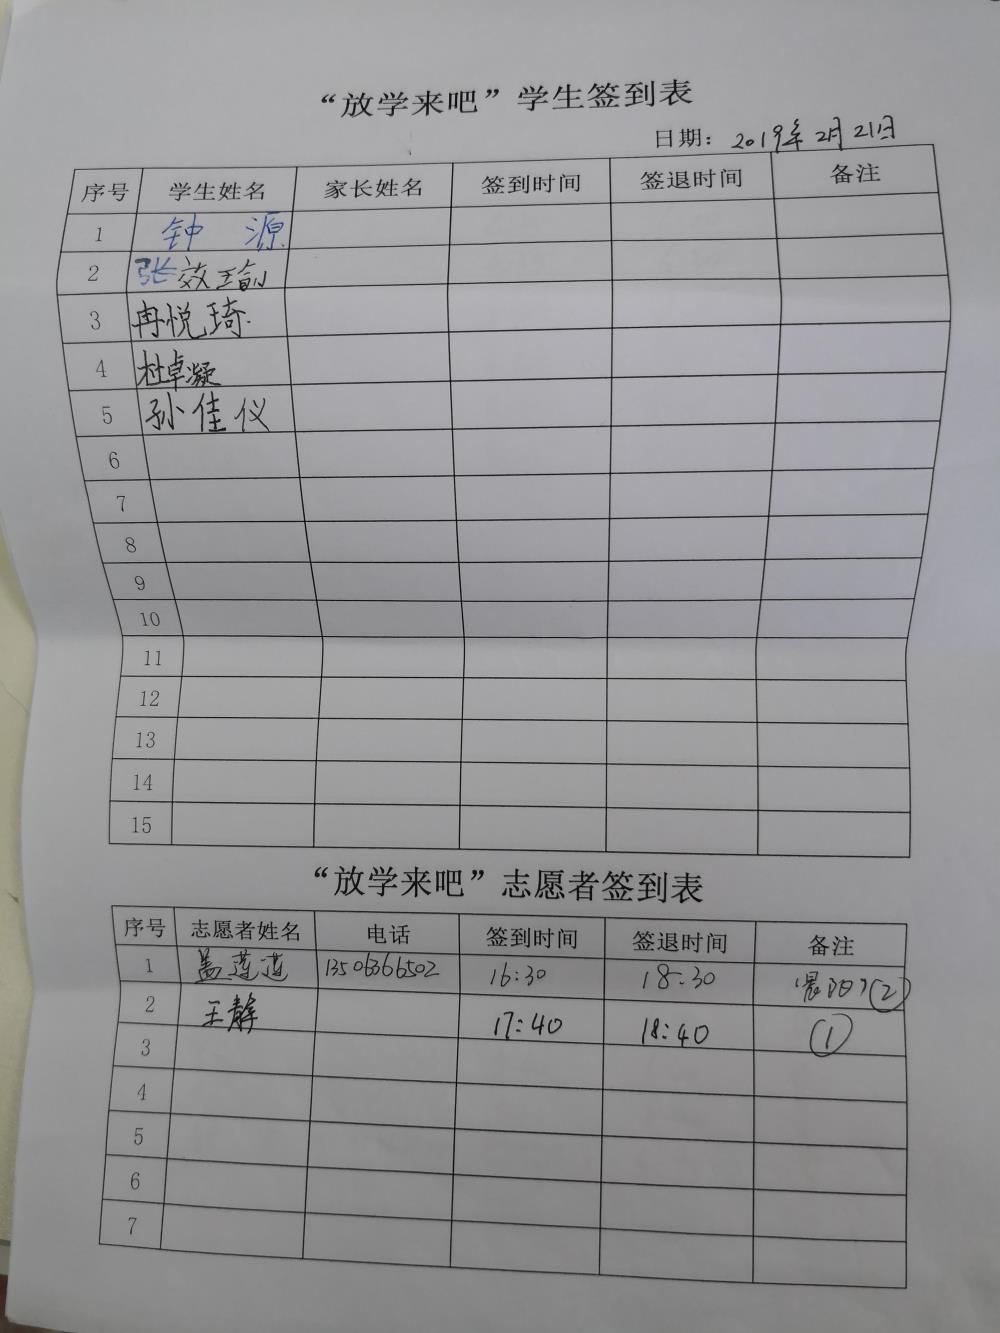 “放学来吧”学生签到表
日期：2019年2月21日
序号 学生姓名 家长姓名 签到时间 签退时间 备注
1 钟源
2 张效瑜
3 冉悦琦
4 杜卓凝
5 孙佳仪
6
7
8
9
10
11
12
13
14
15
“放学来吧”志愿者签到表
序号 志愿者姓名 电话 签到时间 签退时间 备注
1 盖莲莲 13506366502 16:30 18:30 (2)
2 王静 17:40 18:40 (1)
3
4
5
6
7